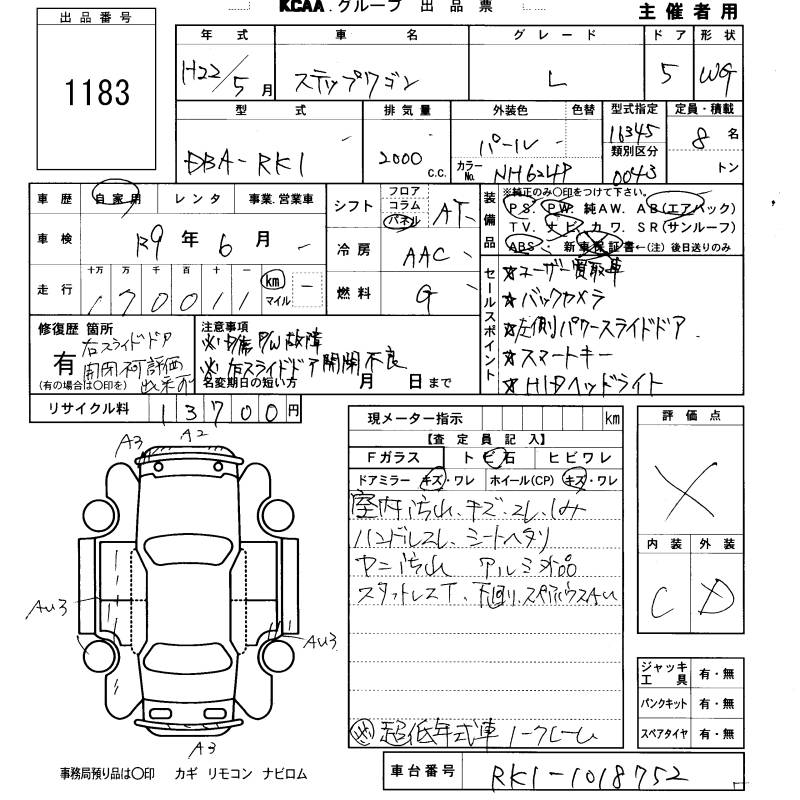 KCAA.グループ 出品票
主催者用
出品番号
1183
年式 車名 グレード ドア 形状
H22/5月 ステップワゴン L 5 WG
型式 排気量 外装色 色替 型式指定 定員・積載
DBA-RK1 2000 c.c. パール 16345 8名
カラーNo. NH624P 類別区分 0043 トン
車歴 自家用 レンタ 事業.営業車
シフト フロア コラム パネル AT
装備品 ※純正のみ〇印をつけて下さい。
PS. PW. 純AW. AB(エアバック)
TV. ナビ. カワ. SR(サンルーフ)
ABS・新車保証書←(注) 後日送りのみ
車検 R9年6月
冷房 AAC
走行 十万 万 千 百 十 一 km マイル
170011
燃料 G
セールスポイント
☆ユーザー買取車
☆バックカメラ
☆左側パワースライドドア
☆スマートキー
☆HIDヘッドライト
修復歴 箇所
有
(有の場合は〇印を)
右スライドドア
開閉不可評価
出来ず
注意事項
※助席P/W故障
※右スライドドア開閉不良
名変期日の短い方 月 日まで
リサイクル料 13700円
現メーター指示 km
【査定員記入】
Fガラス トビ石 ヒビワレ
ドアミラー キズ・ワレ ホイール(CP) キズ・ワレ
室内汚れ.キズ.スレ.しみ
ハンドルスレ.シートヘタリ
ヤニ汚れ アルミ欠品
スタットレスT.下回り.スペアハウスAU
超低年式車 ノークレーム
評価点
X
内装 外装
C D
ジャッキ工具 有・無
パンクキット 有・無
スペアタイヤ 有・無
A3 A2
AU3
AU3
A3
事務局預り品は〇印 カギ リモコン ナビロム
車台番号 RK1-1018752